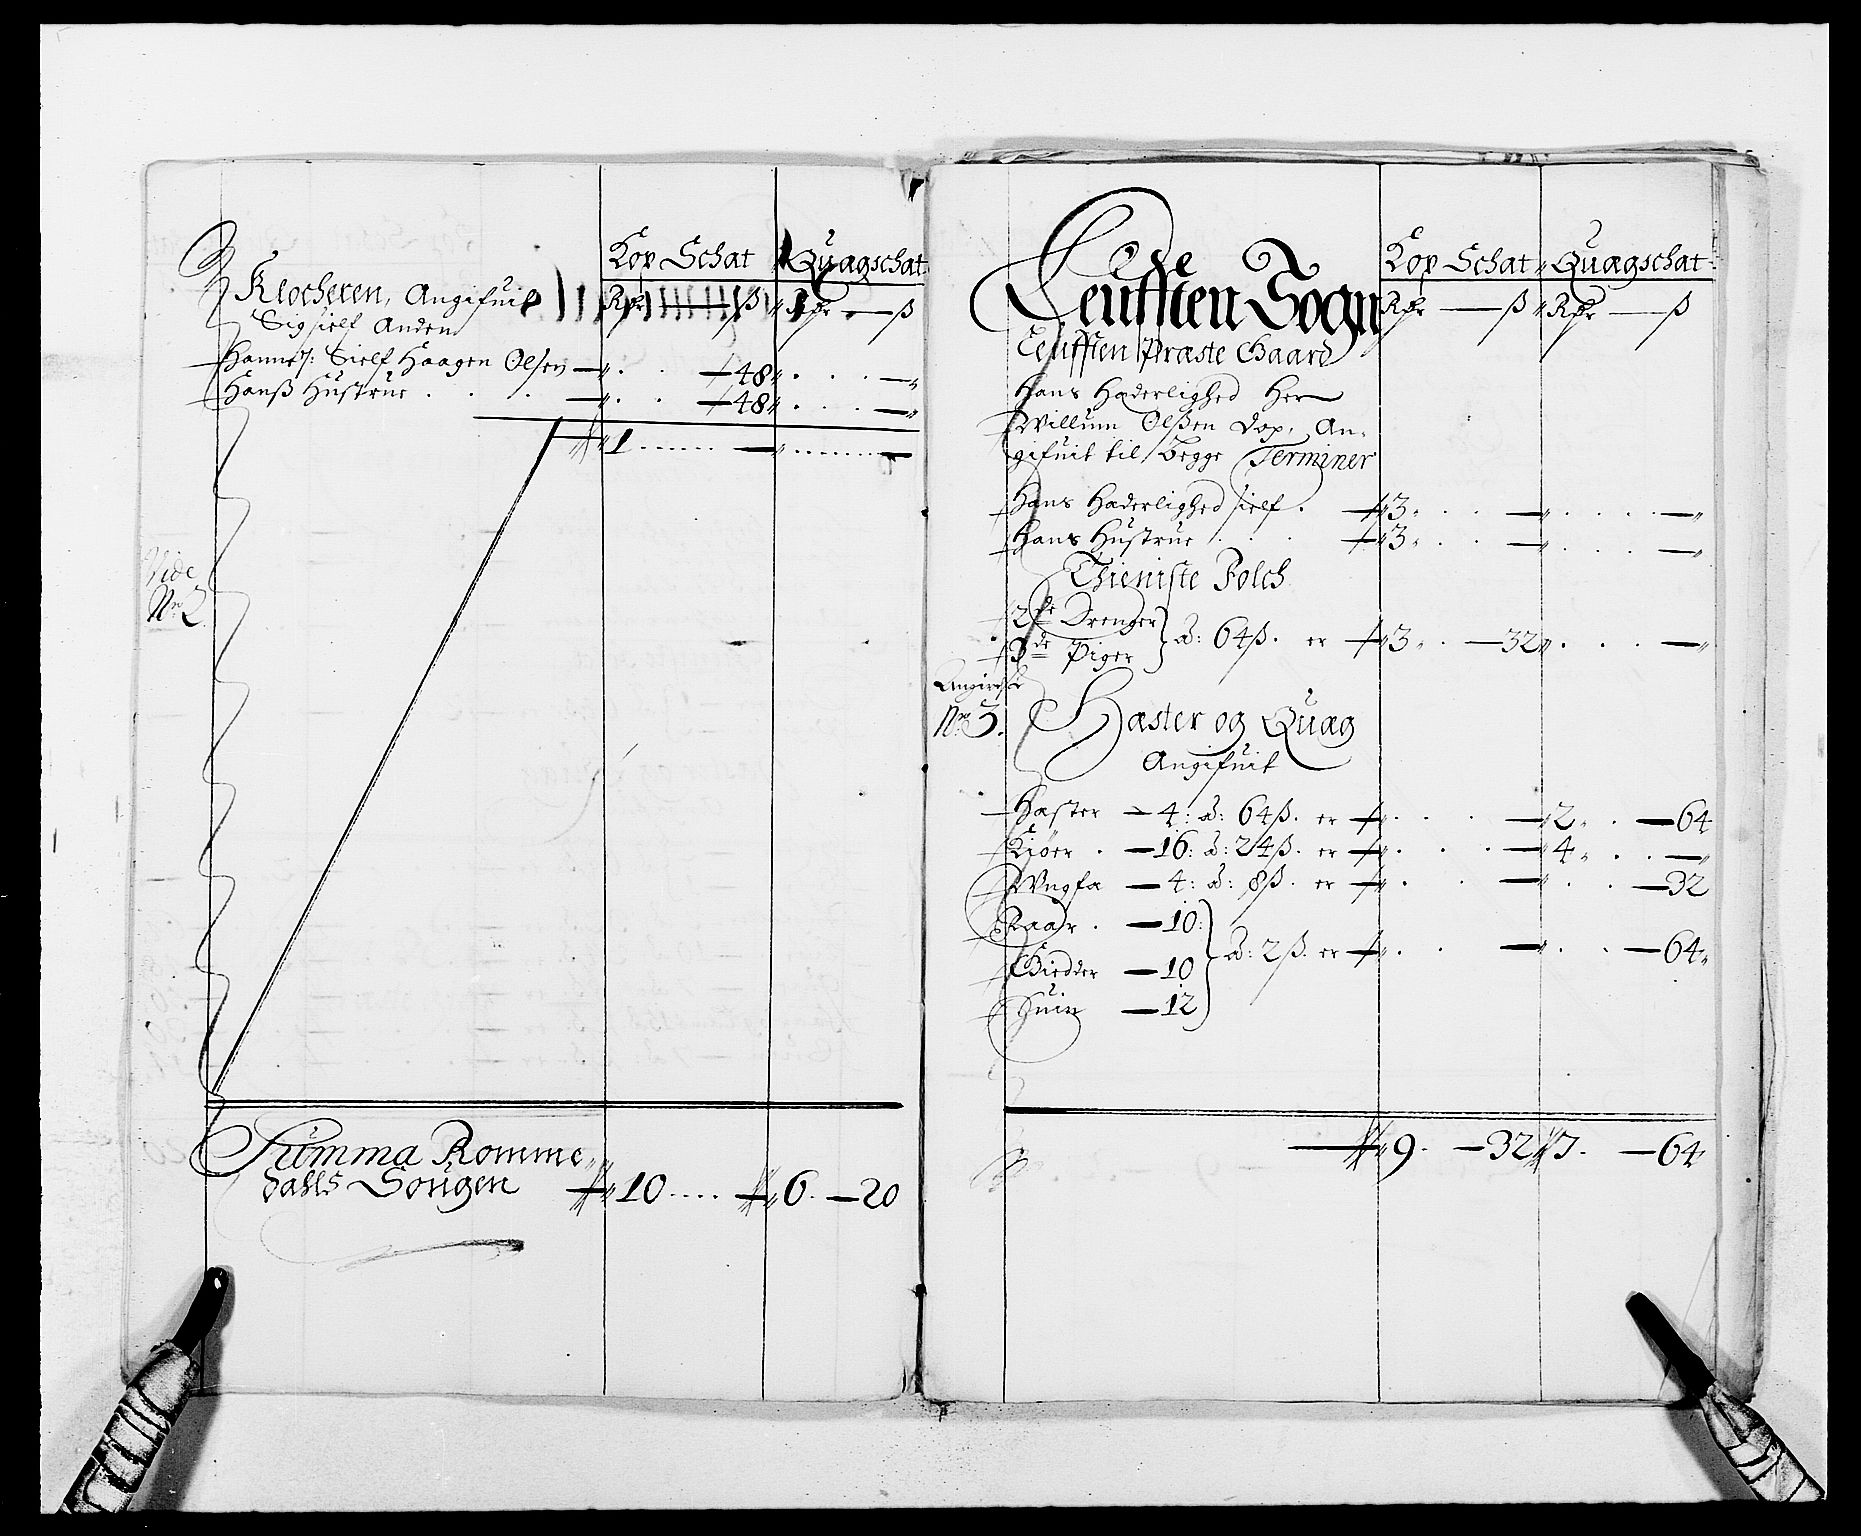 Kop Schat Quagschat
Klocheren, Angifuit Rdr — ß Rdr — ß
Sig sielf Anden
Hannes: Sielf Haagen Olsen — 48
Hanß Hustrue — 48
1
Vide
No 2
Summa Romme
dahls Sougen 10 6 — 20
Kop Schat Quagschat
Leufften Sogn Rdr — ß Rdr — ß
Leufften Præste Gaard
Hans Hæderlighed Her
Willum Olßen Dop, An-
gifuit til Begge Terminer
Hans Hæderlighed sielf 3
Hans Hustrue 3
Thieniste Folch
2de Drenger
3de Piger } à: 64 ß. er 3 — 32
No 3.
Hæster og Quæg
Angifuit
Hæster — 4: à: 64 ß. er 2 — 64
Kiøer — 16: à: 24 ß. er 4
Ungfæ — 4: à: 8 ß. er — 32
Faar — 10:
Gieder — 10 } à: 2 ß. er — 64
Suin — 12
9 — 32 7 — 64